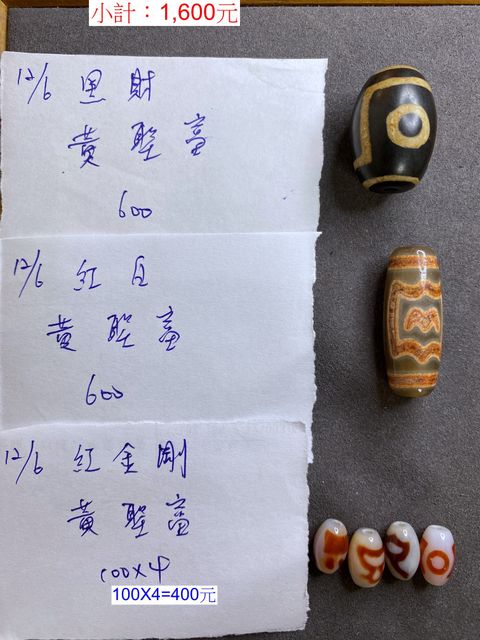 小計：1,600元
12/6 黑財
黃聖富
600
12/6 紅白
黃聖富
600
12/6 紅金剛
黃聖富
100X4
100X4=400元